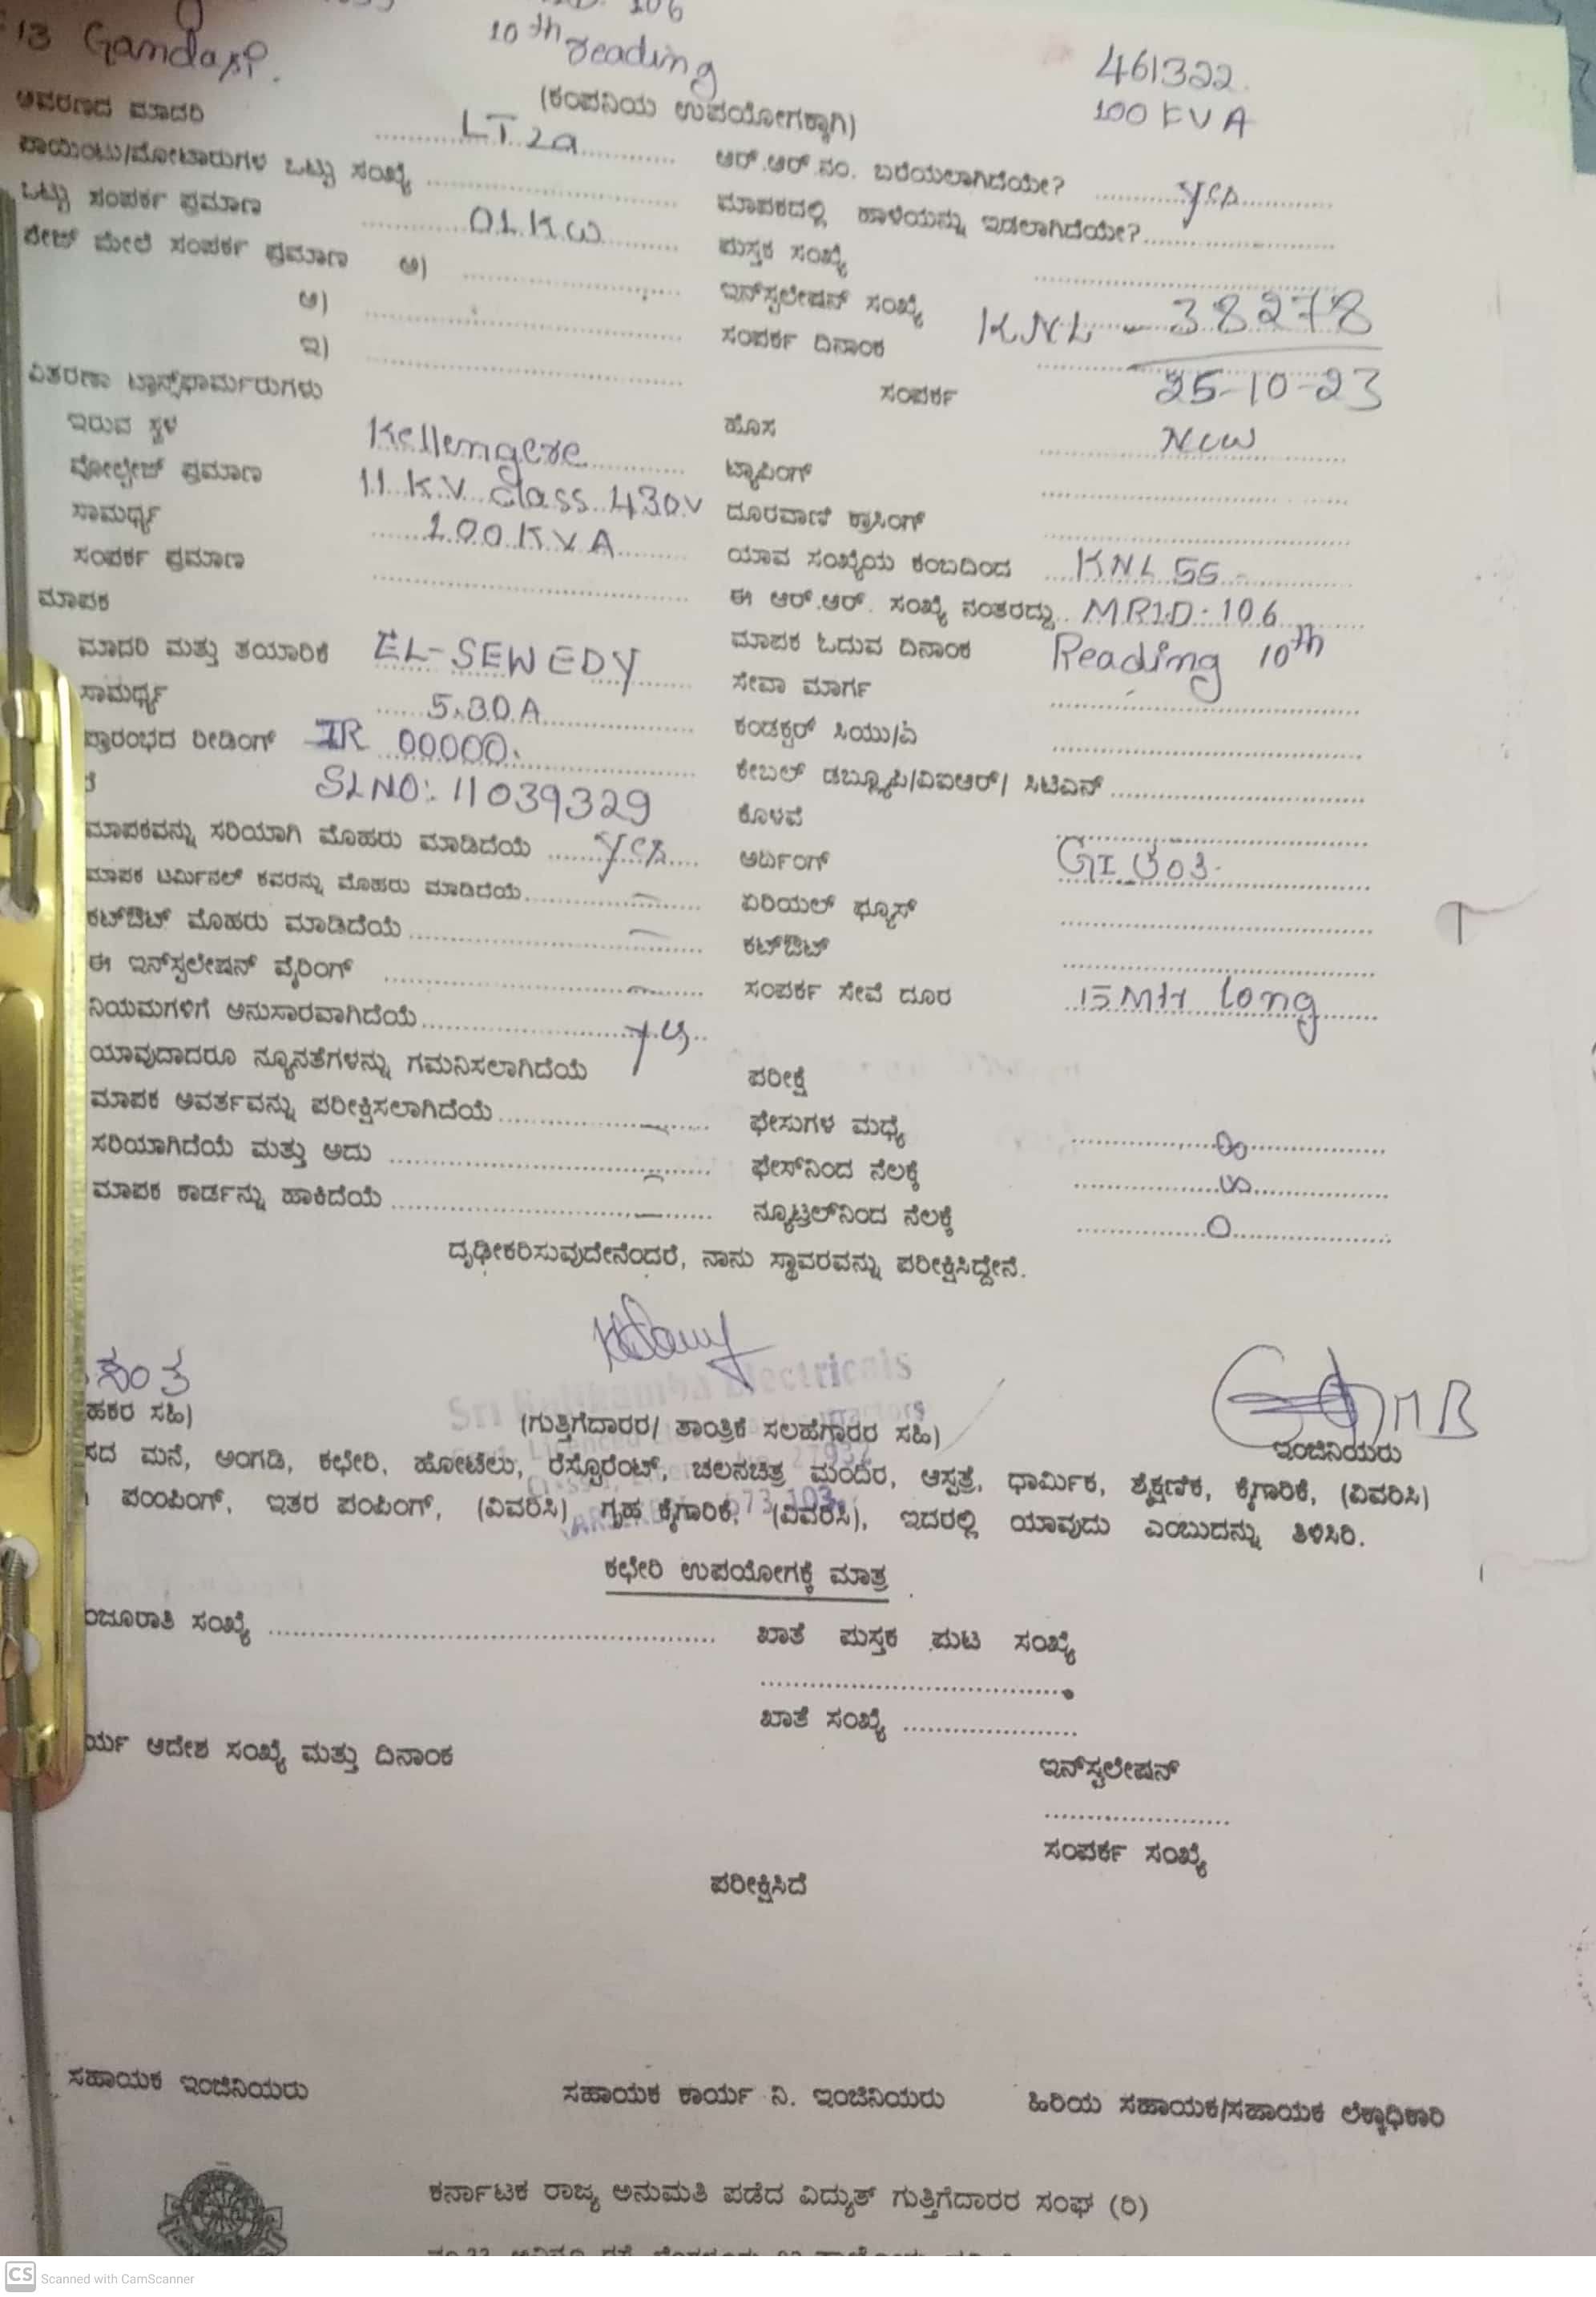 106
13 Gandasi.
10th reading
461322
(ಕಂಪನಿಯ ಉಪಯೋಗಕ್ಕಾಗಿ)
100 KVA
ಆವರಣದ ಮಾದರಿ LT2a
ಆರ್.ಆರ್.ನಂ. ಬರೆಯಲಾಗಿದೆಯೇ? yes
ಪಾಯಿಂಟು/ಮೋಟಾರುಗಳ ಒಟ್ಟು ಸಂಖ್ಯೆ
ಮಾಪಕದಲ್ಲಿ ಹಾಳೆಯನ್ನು ಇಡಲಾಗಿದೆಯೇ?
ಒಟ್ಟು ಸಂಪರ್ಕ ಪ್ರಮಾಣ 01 Kw
ಪುಸ್ತಕ ಸಂಖ್ಯೆ
ಪೇಜ್ ಮೇಲೆ ಸಂಪರ್ಕ ಪ್ರಮಾಣ ಅ)
ಇನ್‌ಸ್ಟಲೇಷನ್ ಸಂಖ್ಯೆ KNL - 38278
ಆ)
ಸಂಪರ್ಕ ದಿನಾಂಕ 25-10-23
ಇ)
ವಿತರಣಾ ಟ್ರಾನ್ಸ್‌ಫಾರ್ಮರುಗಳು
ಸಂಪರ್ಕ
ಇರುವ ಸ್ಥಳ Kellengere
ಹೊಸ New
ವೋಲ್ಟೇಜ್ ಪ್ರಮಾಣ 11 K.V. class 430V
ಟ್ಯಾಪಿಂಗ್
ಸಾಮರ್ಥ್ಯ 100 KVA
ದೂರವಾಣಿ ಕ್ರಾಸಿಂಗ್
ಸಂಪರ್ಕ ಪ್ರಮಾಣ
ಯಾವ ಸಂಖ್ಯೆಯ ಕಂಬದಿಂದ KNL 55
ಮಾಪಕ
ಈ ಆರ್.ಆರ್. ಸಂಖ್ಯೆ ನಂತರದ್ದು MRID: 106
ಮಾದರಿ ಮತ್ತು ತಯಾರಿಕೆ EL-SEWEDY
ಮಾಪಕ ಓದುವ ದಿನಾಂಕ Reading 10th
ಸಾಮರ್ಥ್ಯ 5-30A
ಸೇವಾ ಮಾರ್ಗ
ಪ್ರಾರಂಭದ ರೀಡಿಂಗ್ IR 00000.
ಕಂಡಕ್ಟರ್ ಸಿಯು/ಎ
SLNO: 11039329
ಕೇಬಲ್ ಡಬ್ಲ್ಯೂಪಿ/ವಿಐಆರ್/ ಸಿಟಿಎಸ್
ಕೊಳವೆ
ಮಾಪಕವನ್ನು ಸರಿಯಾಗಿ ಮೊಹರು ಮಾಡಿದೆಯೆ yes
ಅರ್ಥಿಂಗ್ GI
ಮಾಪಕ ಟರ್ಮಿನಲ್ ಕವರನ್ನು ಮೊಹರು ಮಾಡಿದೆಯೆ –
ಏರಿಯಲ್ ಫ್ಯೂಸ್
ಕಟ್‌ಔಟ್ ಮೊಹರು ಮಾಡಿದೆಯೆ –
ಕಟ್‌ಔಟ್
ಈ ಇನ್‌ಸ್ಟಲೇಷನ್ ವೈರಿಂಗ್ –
ಸಂಪರ್ಕ ಸೇವೆ ದೂರ 15 Mtr long
ನಿಯಮಗಳಿಗೆ ಅನುಸಾರವಾಗಿದೆಯೆ yes
ಯಾವುದಾದರೂ ನ್ಯೂನತೆಗಳನ್ನು ಗಮನಿಸಲಾಗಿದೆಯೆ
ಪರೀಕ್ಷೆ
ಮಾಪಕ ಅವರ್ತವನ್ನು ಪರೀಕ್ಷಿಸಲಾಗಿದೆಯೆ –
ಫೇಸುಗಳ ಮಧ್ಯೆ ∞
ಸರಿಯಾಗಿದೆಯೆ ಮತ್ತು ಅದು –
ಫೇಸ್‌ನಿಂದ ನೆಲಕ್ಕೆ ∞
ಮಾಪಕ ಕಾರ್ಡನ್ನು ಹಾಕಿದೆಯೆ –
ನ್ಯೂಟ್ರಲ್‌ನಿಂದ ನೆಲಕ್ಕೆ 0
ದೃಢೀಕರಿಸುವುದೇನೆಂದರೆ, ನಾನು ಸ್ಥಾವರವನ್ನು ಪರೀಕ್ಷಿಸಿದ್ದೇನೆ.
Electricals
ಹಕರ ಸಹಿ)
(ಗುತ್ತಿಗೆದಾರರ/ ತಾಂತ್ರಿಕ ಸಲಹೆಗಾರರ ಸಹಿ)
ಇಂಜಿನಿಯರು
ಸದ ಮನೆ, ಅಂಗಡಿ, ಕಛೇರಿ, ಹೋಟೆಲು, ರೆಸ್ಟೊರೆಂಟ್, ಚಲನಚಿತ್ರ ಮಂದಿರ, ಆಸ್ಪತ್ರೆ, ಧಾರ್ಮಿಕ, ಶೈಕ್ಷಣಿಕ, ಕೈಗಾರಿಕೆ, (ವಿವರಿಸಿ)
ಪಂಪಿಂಗ್, ಇತರ ಪಂಪಿಂಗ್, (ವಿವರಿಸಿ) ಗೃಹ ಕೈಗಾರಿಕೆ, (ವಿವರಿಸಿ), ಇದರಲ್ಲಿ ಯಾವುದು ಎಂಬುದನ್ನು ತಿಳಿಸಿರಿ.
ಕಛೇರಿ ಉಪಯೋಗಕ್ಕೆ ಮಾತ್ರ
ಂಜೂರಾತಿ ಸಂಖ್ಯೆ
ಖಾತೆ ಪುಸ್ತಕ ಪುಟ ಸಂಖ್ಯೆ
ಖಾತೆ ಸಂಖ್ಯೆ
ರ್ಯ ಆದೇಶ ಸಂಖ್ಯೆ ಮತ್ತು ದಿನಾಂಕ
ಇನ್‌ಸ್ಟಲೇಷನ್
ಸಂಪರ್ಕ ಸಂಖ್ಯೆ
ಪರೀಕ್ಷಿಸಿದೆ
ಸಹಾಯಕ ಇಂಜಿನಿಯರು
ಸಹಾಯಕ ಕಾರ್ಯ ನಿ. ಇಂಜಿನಿಯರು
ಹಿರಿಯ ಸಹಾಯಕ/ಸಹಾಯಕ ಲೆಕ್ಕಾಧಿಕಾರಿ
ಕರ್ನಾಟಕ ರಾಜ್ಯ ಅನುಮತಿ ಪಡೆದ ವಿದ್ಯುತ್ ಗುತ್ತಿಗೆದಾರರ ಸಂಘ (ರಿ)
CS Scanned with CamScanner